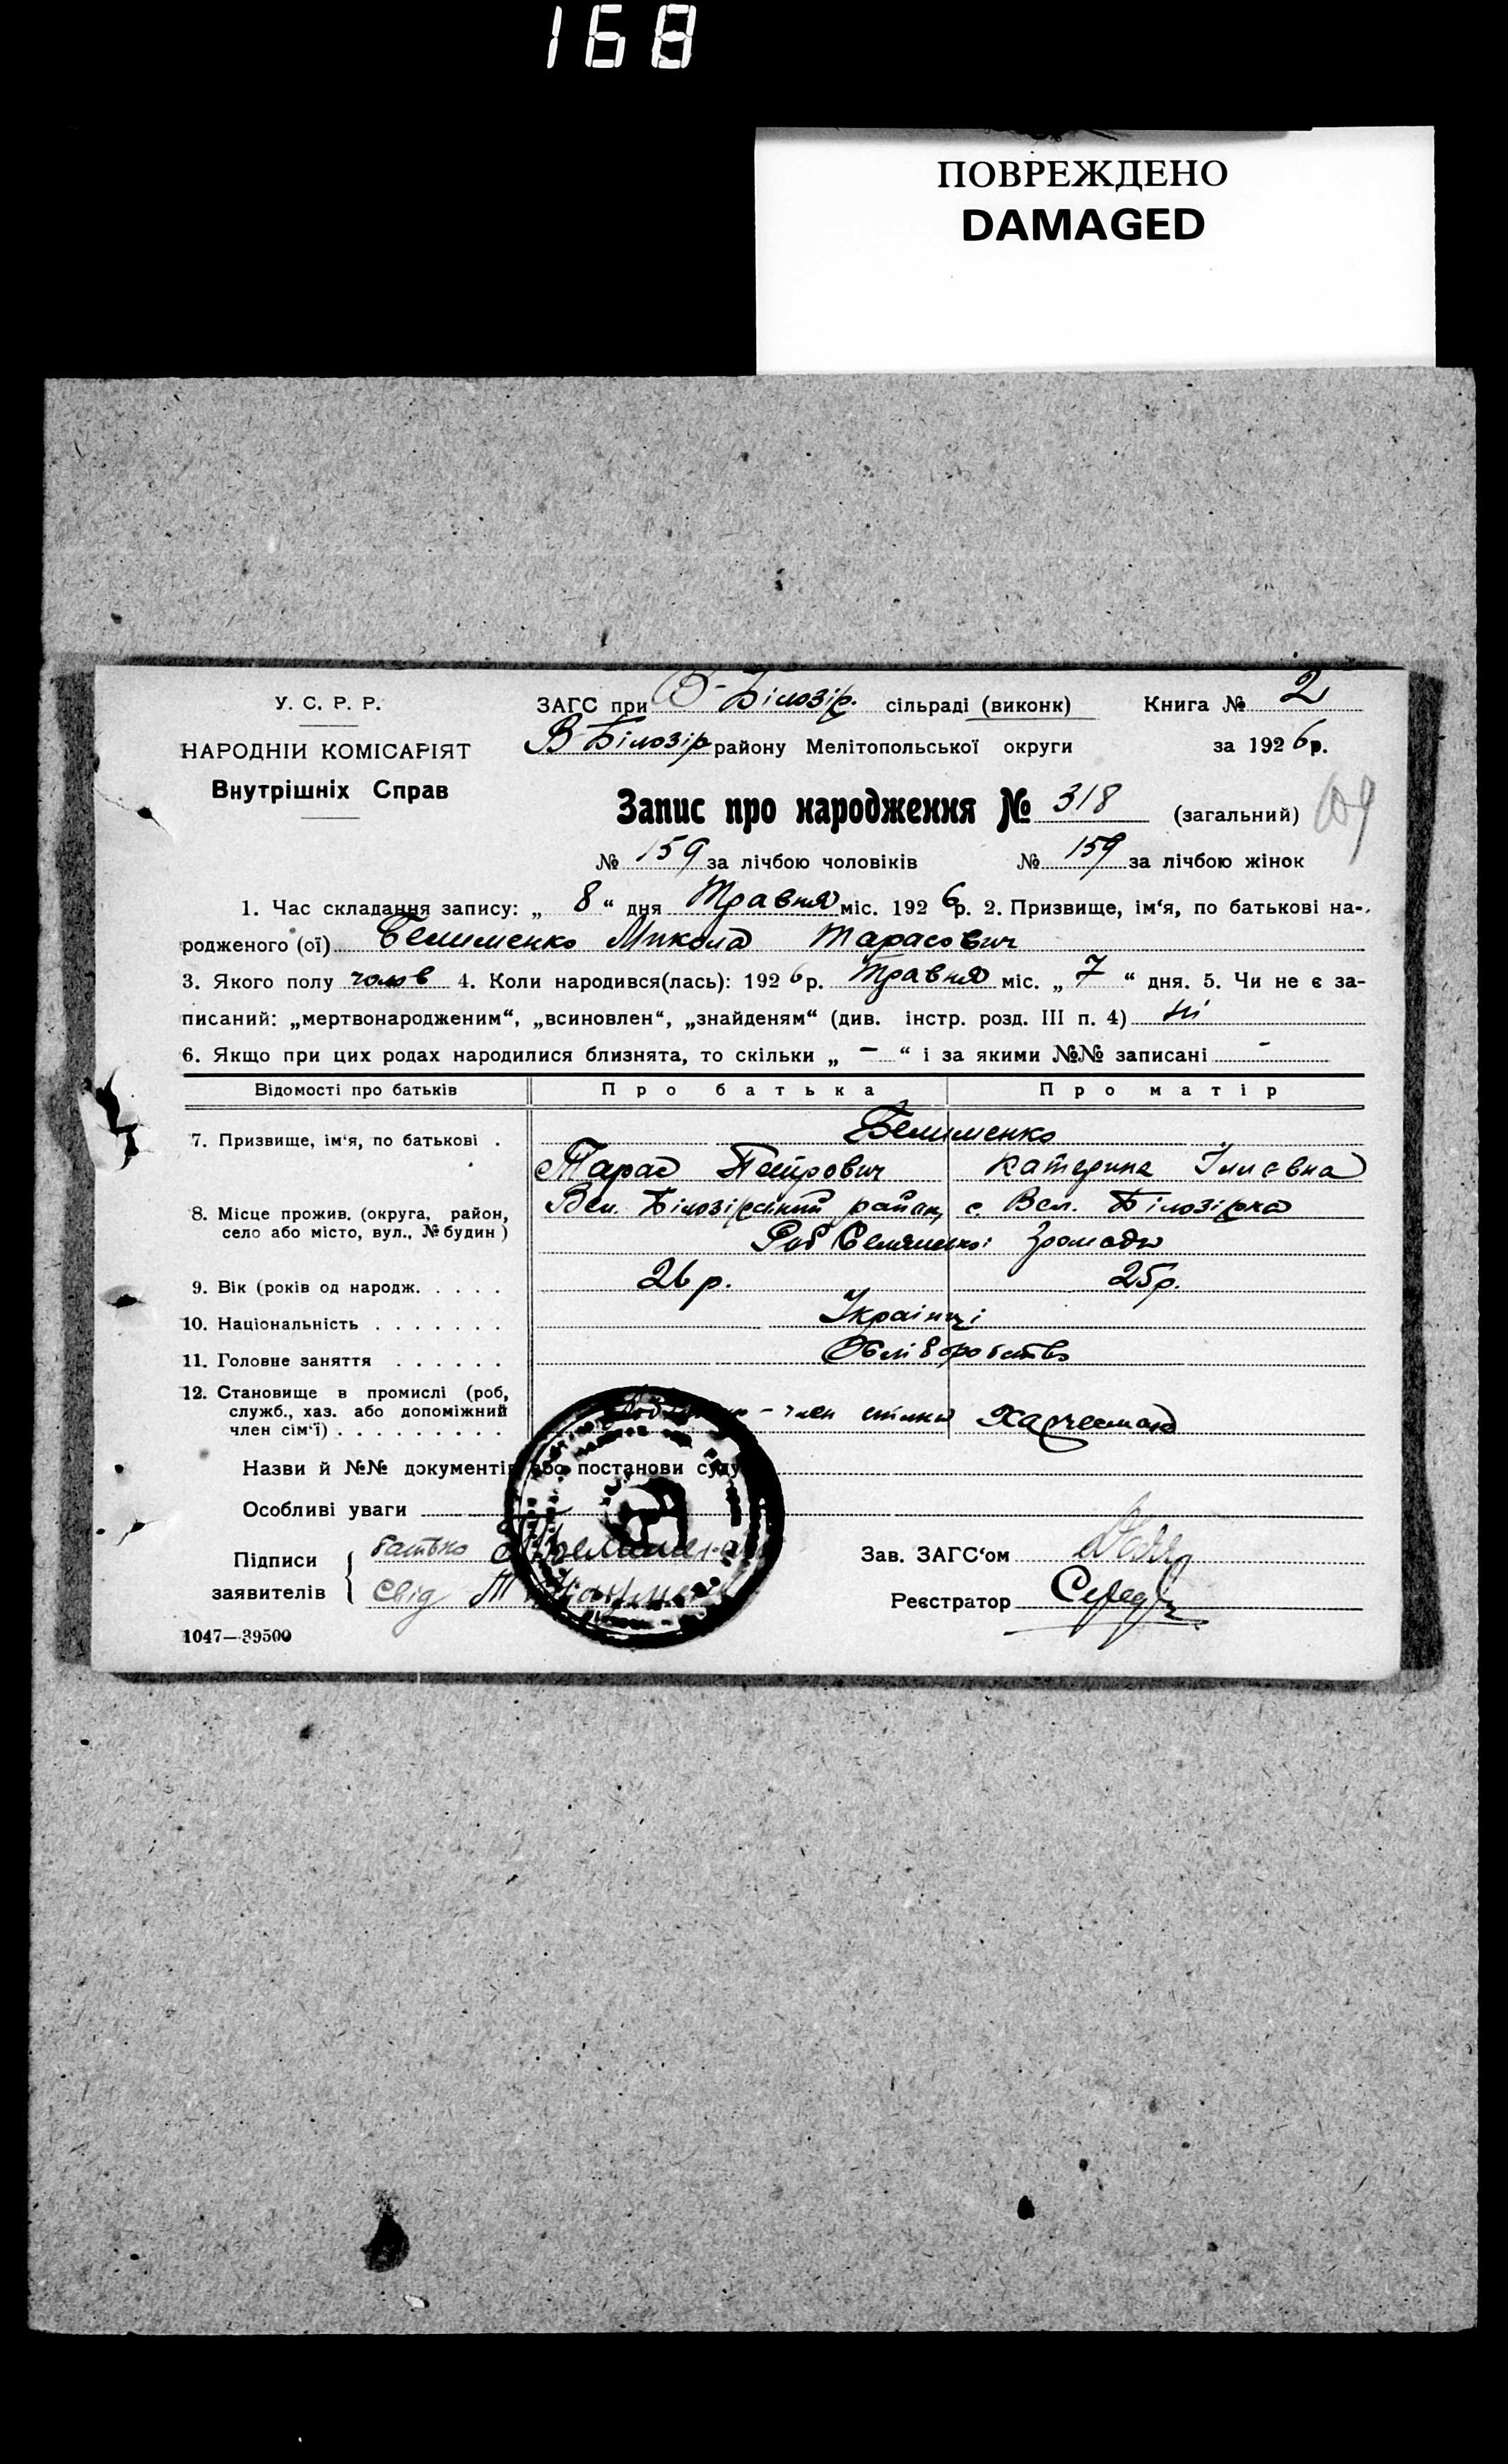 168
ПОВРЕЖДЕНО
DAMAGED
У. С. Р. Р.
НАРОДНІЙ КОМІСАРІЯТ
Внутрішніх Справ
ЗАГС при В-Білозір. сільраді (виконк) Книга № 2
В-Білозір району Мелітопольської округи за 1926р.
Запис про народження № 318 (загальний)
№ 159 за лічбою чоловіків № 159 за лічбою жінок
1. Час складання запису: „ 8 “ дня Травня міс. 1926р. 2. Призвище, ім‘я, по батькові на-
родженого (ої) Белименко Микола Тарасович
3. Якого полу чолов 4. Коли народився(лась): 1926р. Травня міс. „ 7 “ дня. 5. Чи не є за-
писаний: „мертвонародженим“, „всиновлен“, „знайденям“ (див. інстр. розд. III п. 4) ні
6. Якщо при цих родах народилися близнята, то скільки „ — “ і за якими №№ записані -
Відомості про батьків Про батька Про матір
7. Призвище, ім‘я, по батькові . Белименко
Тарас Петрович Катерина Іллєвна
8. Місце прожив. (округа, район,
село або місто, вул., № будин)
Вел. Білозірський район, с. Вел. Білозірка
громади
9. Вік (років од народж. . . . . 26 р. 25 р.
10. Національність . . . . . . . Українці
11. Головне заняття . . . . . . Хліборобство
12. Становище в промислі (роб,
служб., хаз. або допоміжний
член сім‘ї) . . . . . . . . .
- член
Назви й №№ документів або постанови суду
Особливі уваги
Підписи
заявителів
батько
свід
Зав. ЗАГС‘ом
Реєстратор
1047—39500